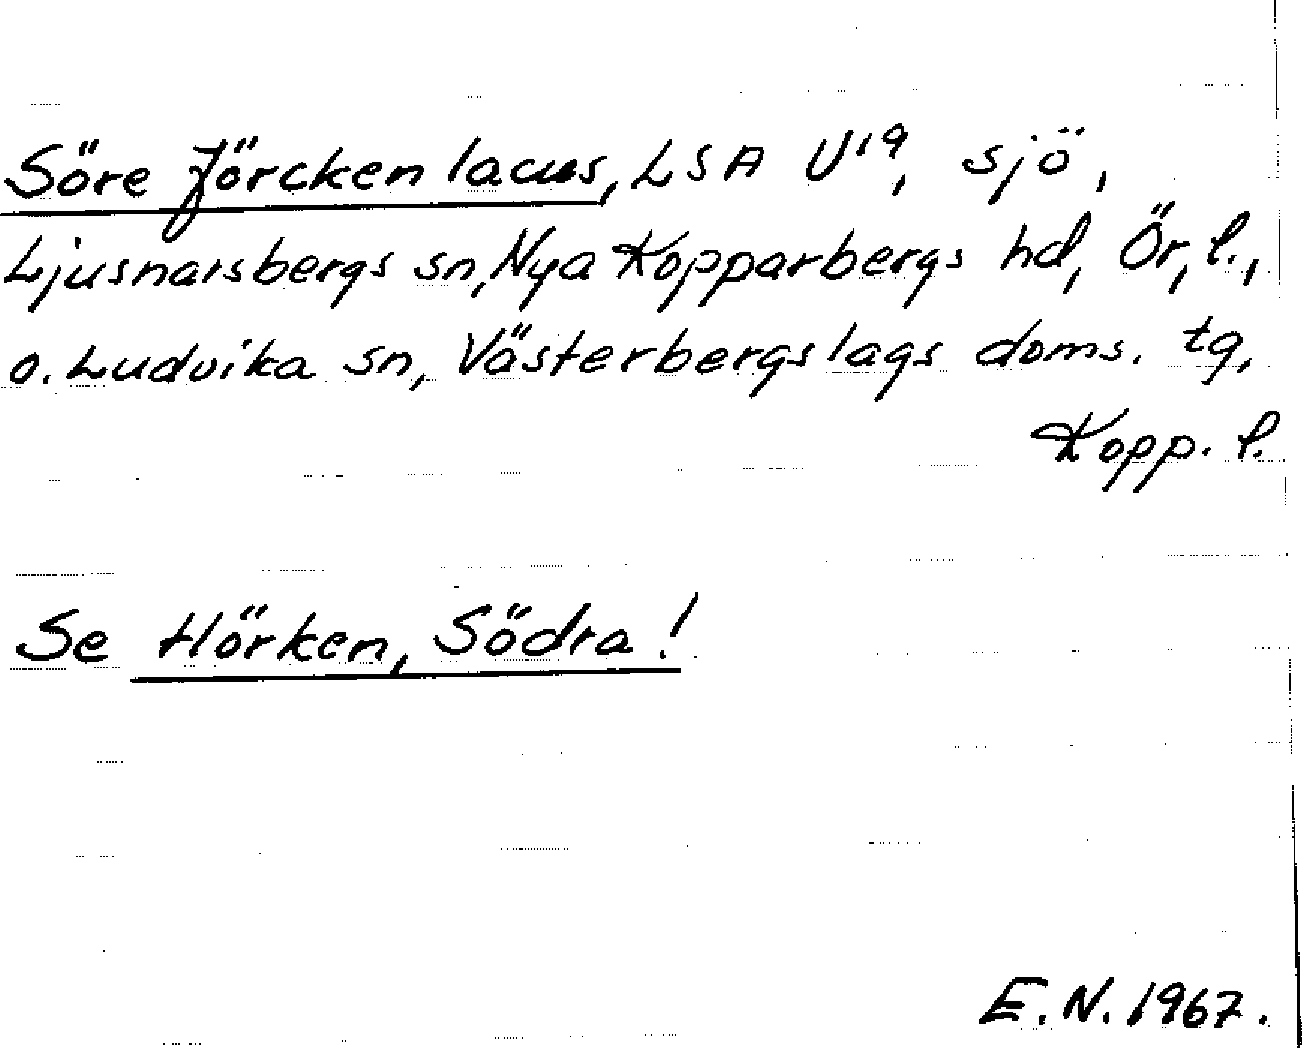 Söre Jörcken lacus, LSA U¹⁹, sjö,
Ljusnarsbergs sn, Nya Kopparbergs hd, Ör, l.,
o. Ludvika sn, Västerbergslags doms. tg,
Kopp. l.
Se Hörken, Södra!
E.N. 1967.